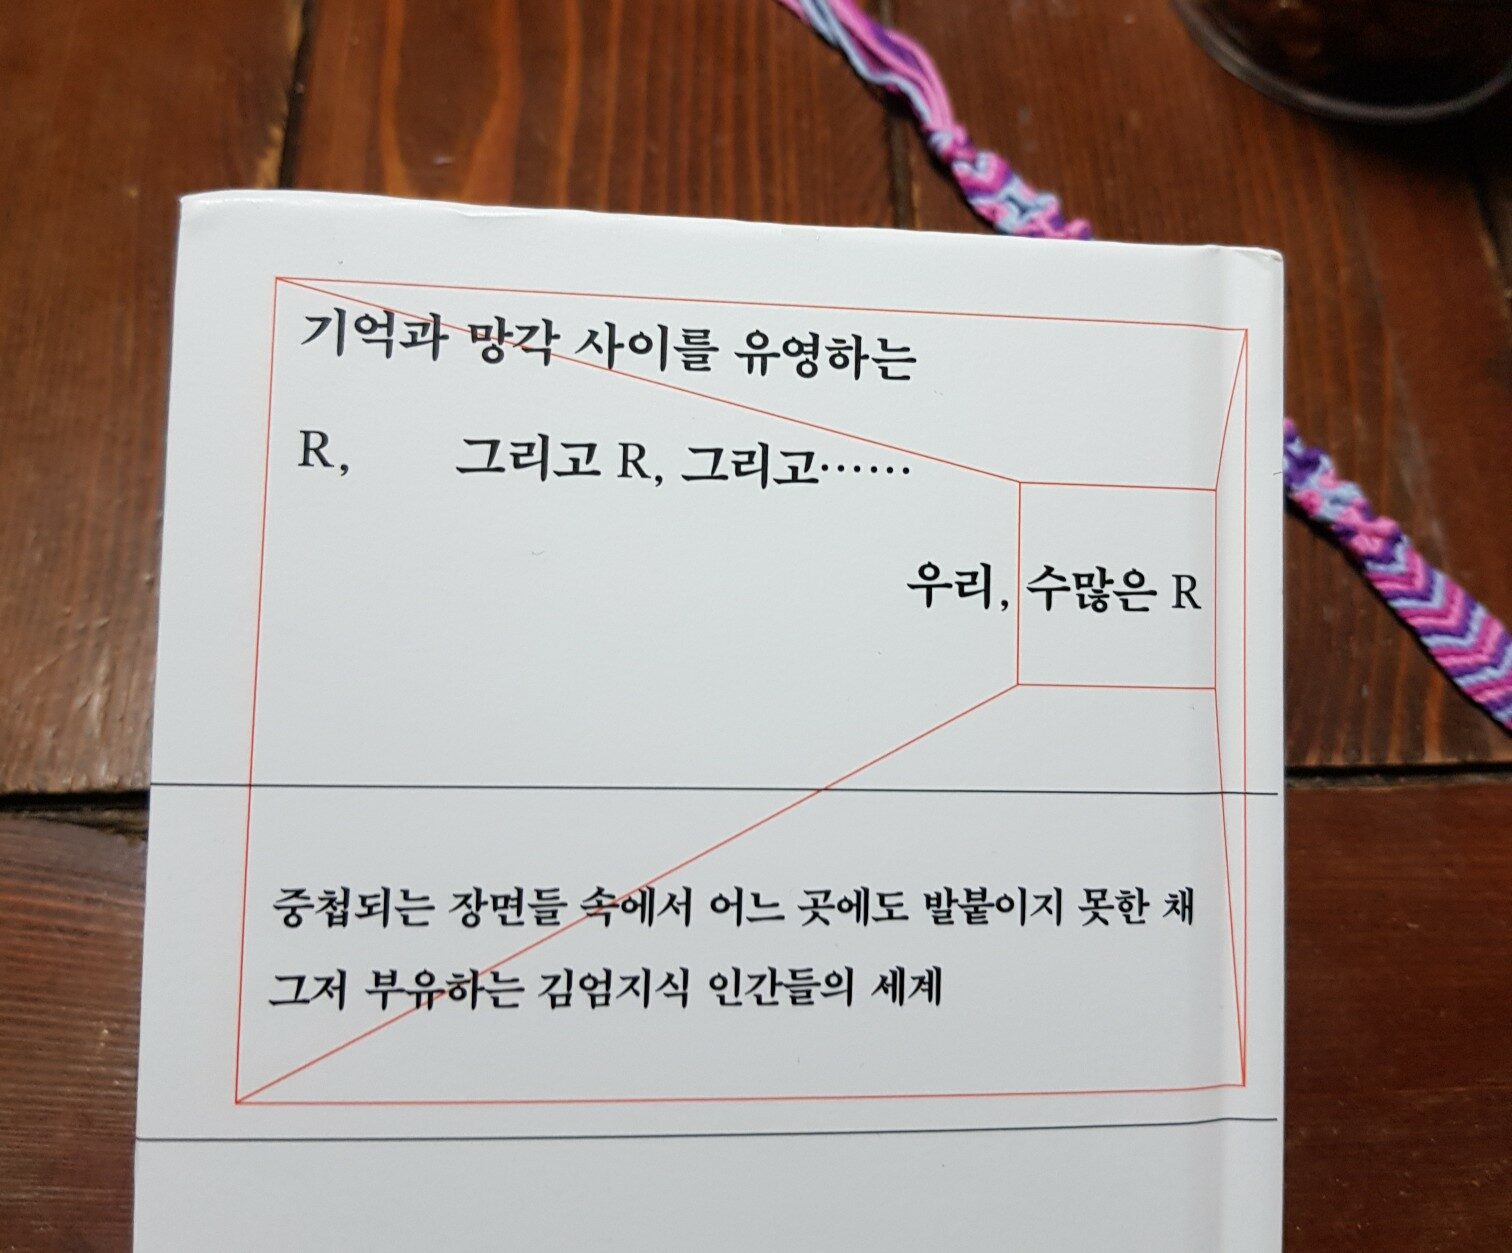 기억과 망각 사이를 유영하는
R, 그리고 R, 그리고……
우리, 수많은 R
중첩되는 장면들 속에서 어느 곳에도 발붙이지 못한 채
그저 부유하는 김엄지식 인간들의 세계